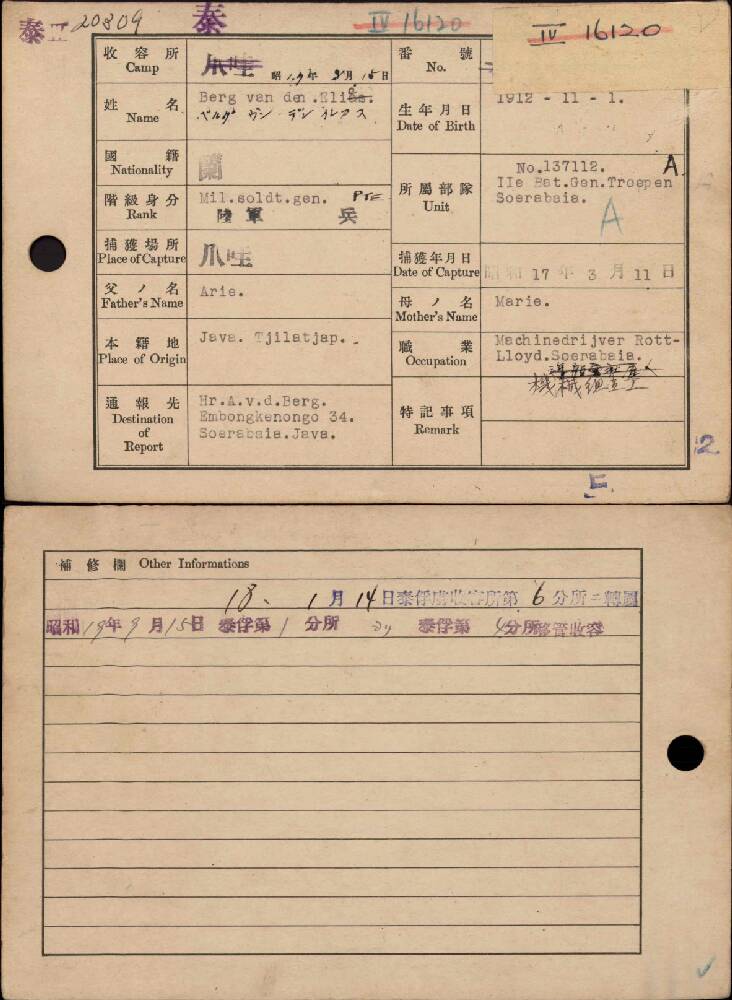 泰 II 20809
泰
IV 16120
IV 16120
收容所 Camp
爪哇 昭19年 9月15日
番號 No.
姓名 Name
Berg van den.Elias.
ベルグ ヴン デン エレアス
生年月日 Date of Birth
1912 - 11 - 1.
國籍 Nationality
蘭
階級身分 Rank
Mil.soldt.gen. Pte
陸軍 兵
所屬部隊 Unit
No.137112. A
IIe Bat.Gen.Troepen
Soerabaia.
A
捕獲場所 Place of Capture
爪哇
捕獲年月日 Date of Capture
昭和 17 年 3 月 11 日
父ノ名 Father's Name
Arie.
母ノ名 Mother's Name
Marie.
本籍地 Place of Origin
Java. Tjilatjap..
職業 Occupation
Machinedrijver Rott-
Lloyd.Soerabaia.
通報先 Destination of Report
Hr.A.v.d.Berg.
Embongkenongo 34.
Soerabaia.Java.
特記事項 Remark
12
補修欄 Other Informations
18、1月14日泰俘虜收容所第6分所ニ轉屬
昭和19年9月15日 泰俘第1分所 ヨリ 泰俘第4分所移管收容